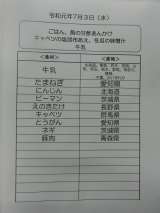 令和元年7月3日（水）
ごはん、魚の甘酢あんかけ
キャベツの塩昆布あえ、冬瓜の味噌汁
牛乳
＜食材＞ ＜産地＞
牛乳
たまねぎ 愛知県
にんじん 北海道
ピーマン 茨城県
えのきだけ 長野県
キャベツ 群馬県
とうがん 愛知県
ネギ 茨城県
豚肉 青森県